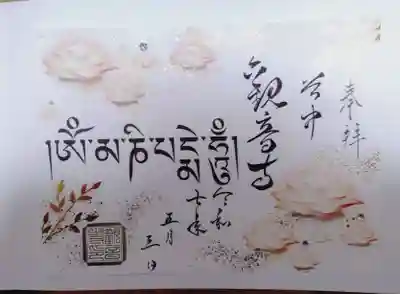 奉拝
谷中
観音寺
།ཨོཾ་མ་ཎི་པདྨེ་ཧཱུྃ།
令和
七年
五月
三日